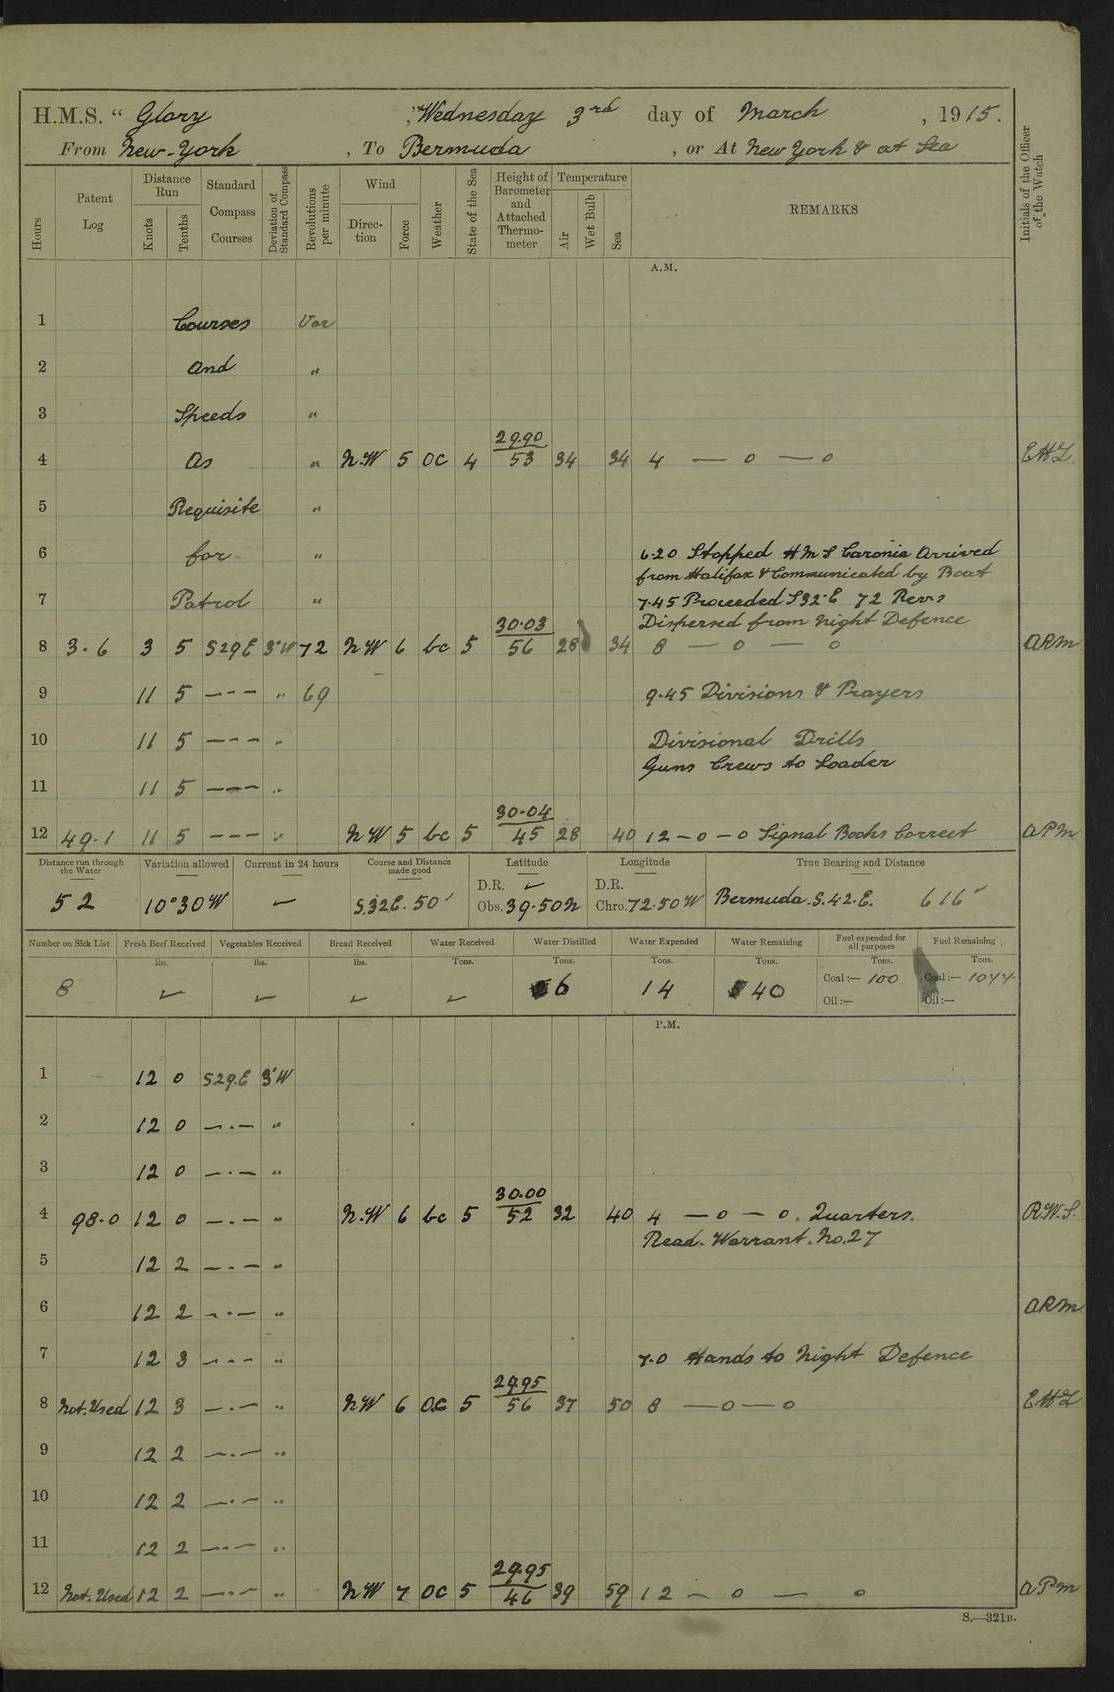 H.M.S. " Glory ," Wednesday 3rd day of March , 1915.
From New-York , To Bermuda , or At New York & at Sea
Initials of the Officer of the Watch
Hours Patent Log Distance Run Knots Tenths Standard Compass Courses Deviation of Standard Compass Revolutions per minute Wind Direction Force Weather State of the Sea Height of Barometer and Attached Thermometer Temperature Air Wet Bulb Sea REMARKS
A.M.
1 Courses Var
2 and "
3 Speeds "
29.90
4 As " N.W 5 OC 4 53 34 34 4 — 0 — 0
5 Requisite "
6 for " 6.20 Stopped HMS Caronia Arrived
from Halifax & Communicated by Boat
7 Patrol " 7.45 Proceeded S32°E 72 Revs
30.03 Dispersed from Night Defence
8 3.6 3 5 S29E 3°W 72 NW 6 bc 5 56 28 34 8 — 0 — 0 ARM
9 11 5 --- " 69 9.45 Divisions & Prayers
10 11 5 --- " Divisional Drills
Guns Crews to Loader
11 11 5 --- "
30.04
12 49.1 11 5 --- " NW 5 bc 5 45 28 40 12 – 0 – 0 Signal Books Correct APM
Distance run through the Water Variation allowed Current in 24 hours Course and Distance made good Latitude Longitude True Bearing and Distance
D.R. ✓ D.R.
52 10°30W ✓ S.32E. 50' Obs. 39.50N Chro. 72.50W Bermuda. S.42.E. 616'
Number on Sick List Fresh Beef Received Vegetables Received Bread Received Water Received Water Distilled Water Expended Water Remaining Fuel expended for all purposes Fuel Remaining
lbs. lbs. lbs. Tons. Tons. Tons. Tons. Tons. Tons.
8 ✓ ✓ ✓ ✓ 6 14 40 Coal:— 100 Coal:— 1044
Oil:— Oil:—
P.M.
1 12 0 S29.E 3°W
2 12 0 —·— "
3 12 0 —·— "
30.00
4 98.0 12 0 —·— " N.W 6 bc 5 52 32 40 4 — 0 — 0. Quarters. R.W.S.
Read. Warrant. No.27
5 12 2 —·— "
6 12 2 —·— " ARM
7 12 3 --- " 7.0 Hands to Night Defence
29.95
8 Not. Used 12 3 —·— " NW 6 OC 5 56 37 50 8 — 0 — 0
9 12 2 —·— "
10 12 2 —·— "
11 12 2 —·— "
29.95
12 Not. Used 12 2 —·— " NW 7 OC 5 46 39 59 12 — 0 — 0 APM
S.—321B.